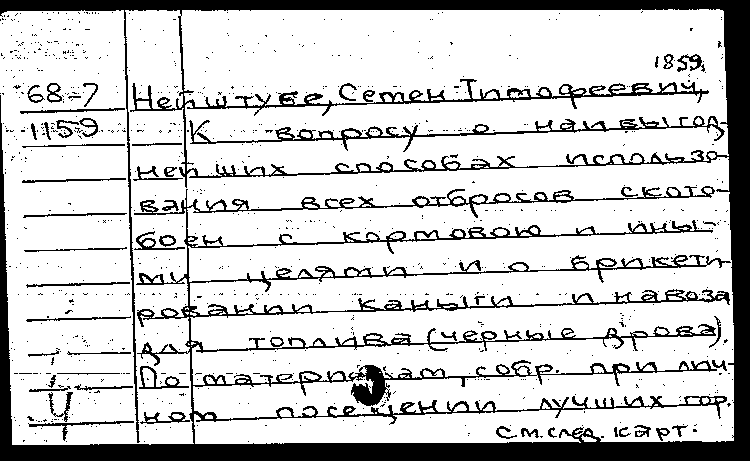 1859.
68-7 Нейштубе, Семен Тимофеевич,
1159 К вопросу о наивыгод-
нейших способах использо-
вания всех отбросов ското-
боен с кормовою и ины-
ми целями и о брикети-
ровании каныги и навоза
для топлива (черные дрова).
По материалам, собр. при лич-
ном посещении лучших гор.
См. след. карт.
Ч